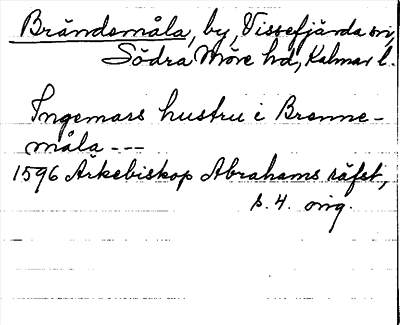 Brändsmåla, by, Vissefjärda sn,
Södra Möre hd, Kalmar l.
Ingemars hustru i Brenne-
måla ---
1596 Ärkebiskop Abrahams räfst,
s. 4. orig.